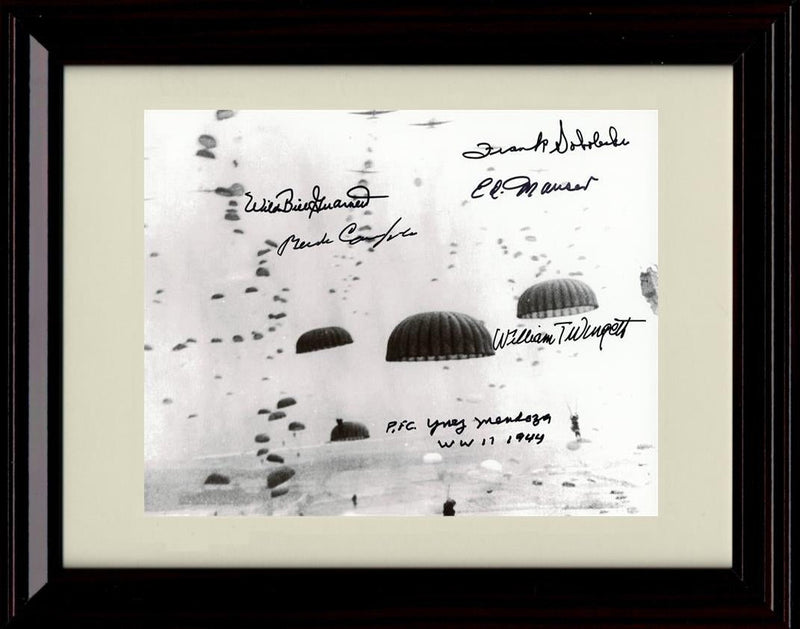 Frank Soboleski
Ed. Mauser
Wild Bill Guarnere
William T Wingett
P.FC. Ynez Mendoza
WW II 1944